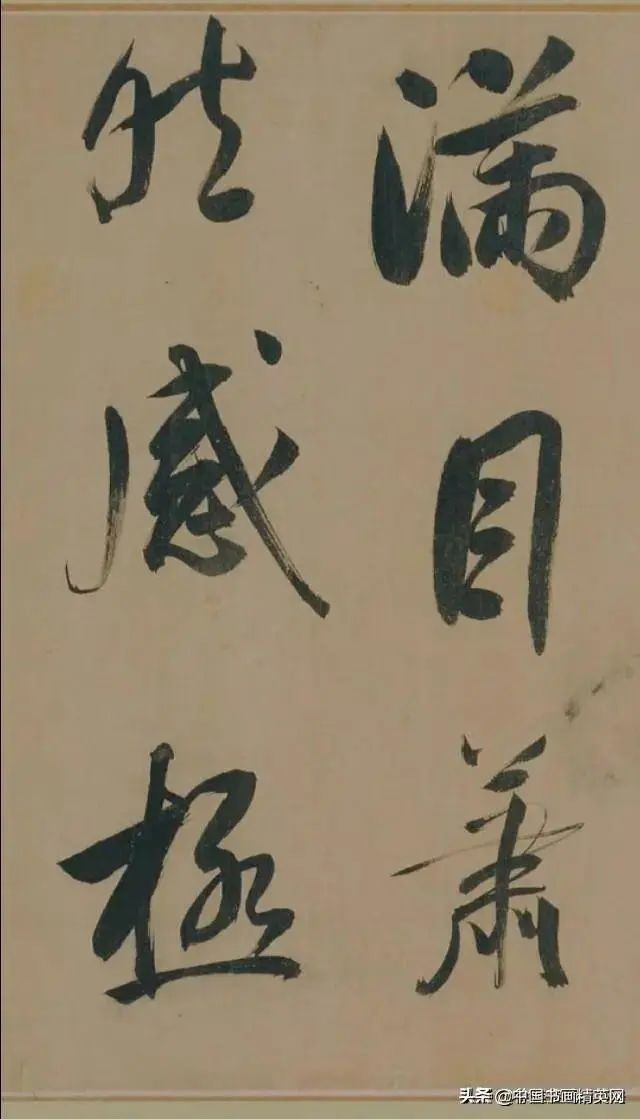 满目萧
然感极
头条 @中国书画精英网